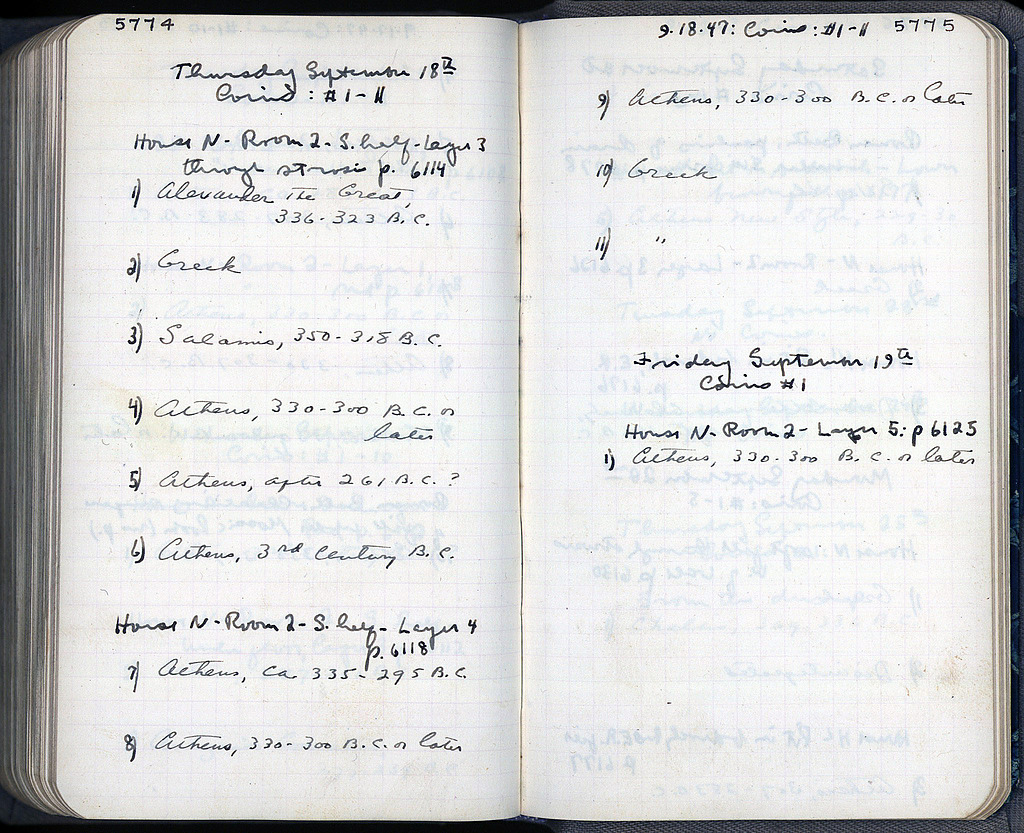 5774
Thursday September 18th
Coins: #1-11
House N- Room 2- S. half- Layer 3
through strosis p. 6114
1) Alexander the Great,
336-323 B.C.
2) Greek
3) Salamis, 350-318 B.C.
4) Athens, 330-300 B.C. or
later
5) Athens, after 261 B.C.?
6) Athens, 3rd century B.C.
House N- Room 2- S. half- Layer 4
p. 6118
7) Athens, ca. 335-295 B.C.
8) Athens, 330-300 B.C. or later
9.18.47: Coins: #1-11 5775
9) Athens, 330-300 B.C. or later
10) Greek
11) "
Friday September 19th
Coins #1
House N- Room 2- Layer 5: p 6125
1) Athens, 330-300 B.C. or later